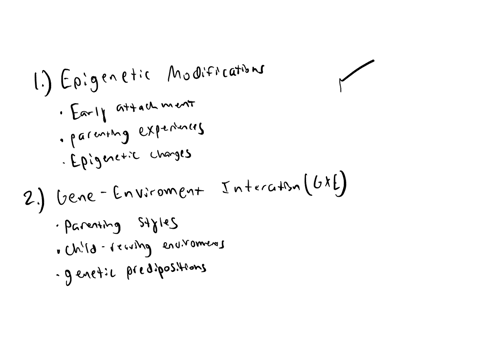 1.) Epigenetic Modifications
• Early attachment
• parenting experiences
• Epigenetic changes
2.) Gene-Enviroment Interation (GXE)
• Parenting Styles
• Child-rearing enviroments
• genetic predipositions